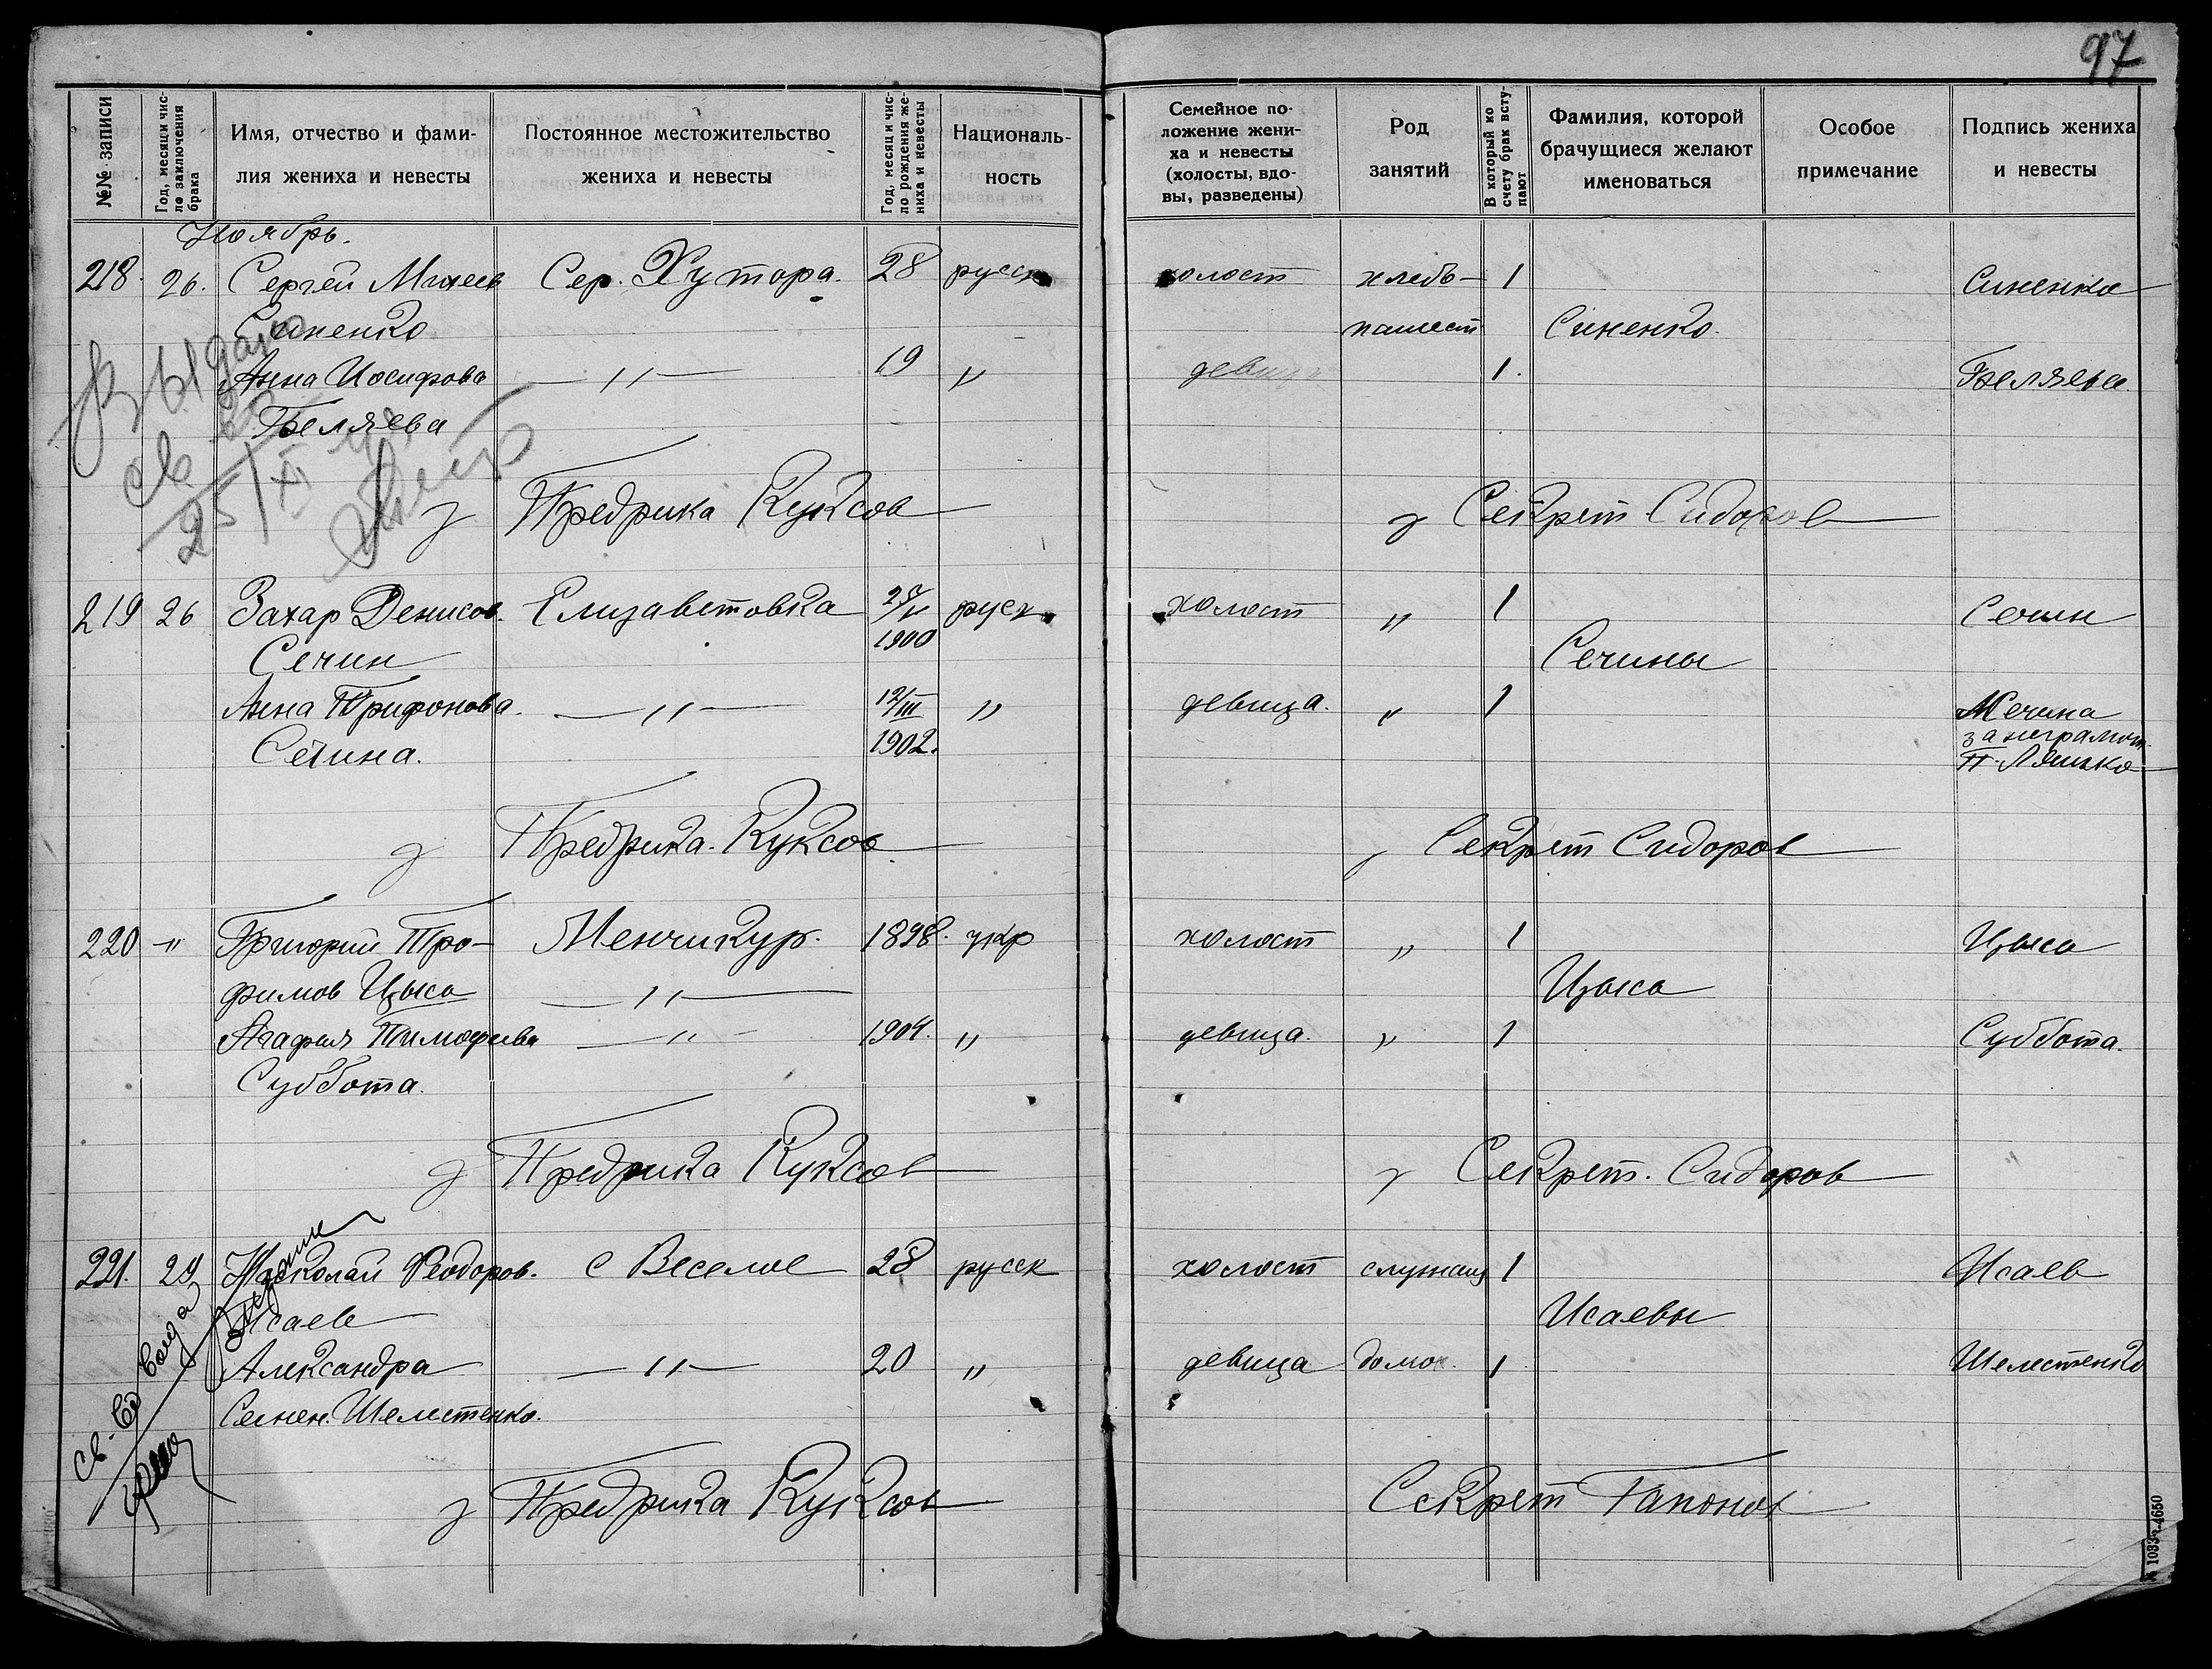 97
№№ записи
Год, месяц и число заключения брака
Имя, отчество и фамилия жениха и невесты
Постоянное местожительство жениха и невесты
Год, месяц и число рождения жениха и невесты
Националь-
ность
Семейное по-
ложение жени-
ха и невесты
(холосты, вдо-
вы, разведены)
Род
занятий
В который ко счету брак вступают
Фамилия, которой
брачущиеся желают
именоваться
Особое
примечание
Подпись жениха
и невесты
Ноябрь.
218. 26. Сергей Михеев Сер. Хутора. 28 русск холост хлебо- 1 Синенко
Синенко пашест Синенко.
Анна Иосифова — " — 19 " девица 1. Беляева
Беляева
Выдано
св
25/XI
Предрика Куксов Секрет Сидоров
219 26 Захар Денисов. Елизаветовка 25/V русск холост " 1 Сечин
Сечин 1900 Сечины
Анна Трифонова. — " — 12/III " девица. " 1 Сечина
Сечина. 1902. за неграмот.
П. Ляшко
Предрика. Куксов Секрет Сидоров
220 -"- Григорий Тро- Менчикур. 1898. укр холост " 1 Цыса
фимов Цыса — " — Цыса
Агафия Тимофеева — " — 1904. " девица. " 1 Суббота.
Суббота.
Предрика Куксов Секрет. Сидоров
221. 29 Николай Феодоров. с Веселое 28 русск холост служащ 1 Исаев
Исаев Исаевы
Александра — " — 20 " девица домох. 1 Шелестенко
Семен. Шелестенко.
Предрика Куксов Секрет Гапонов